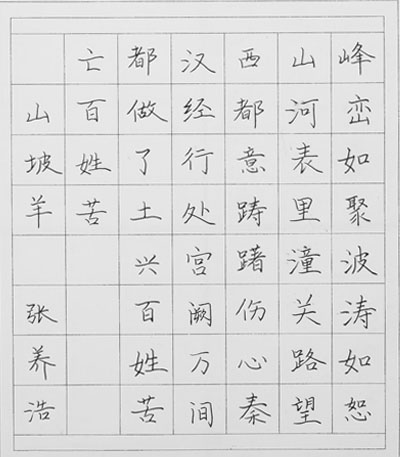 峰峦如聚波涛如恕
山河表里潼关路望
西都意踌躇伤心秦
汉经行处宫阙万间
都做了土兴百姓苦
亡百姓苦
山坡羊 张养浩